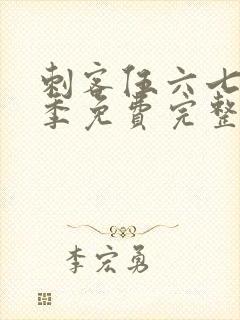 刺客伍六七
季免费完整
李宏勇